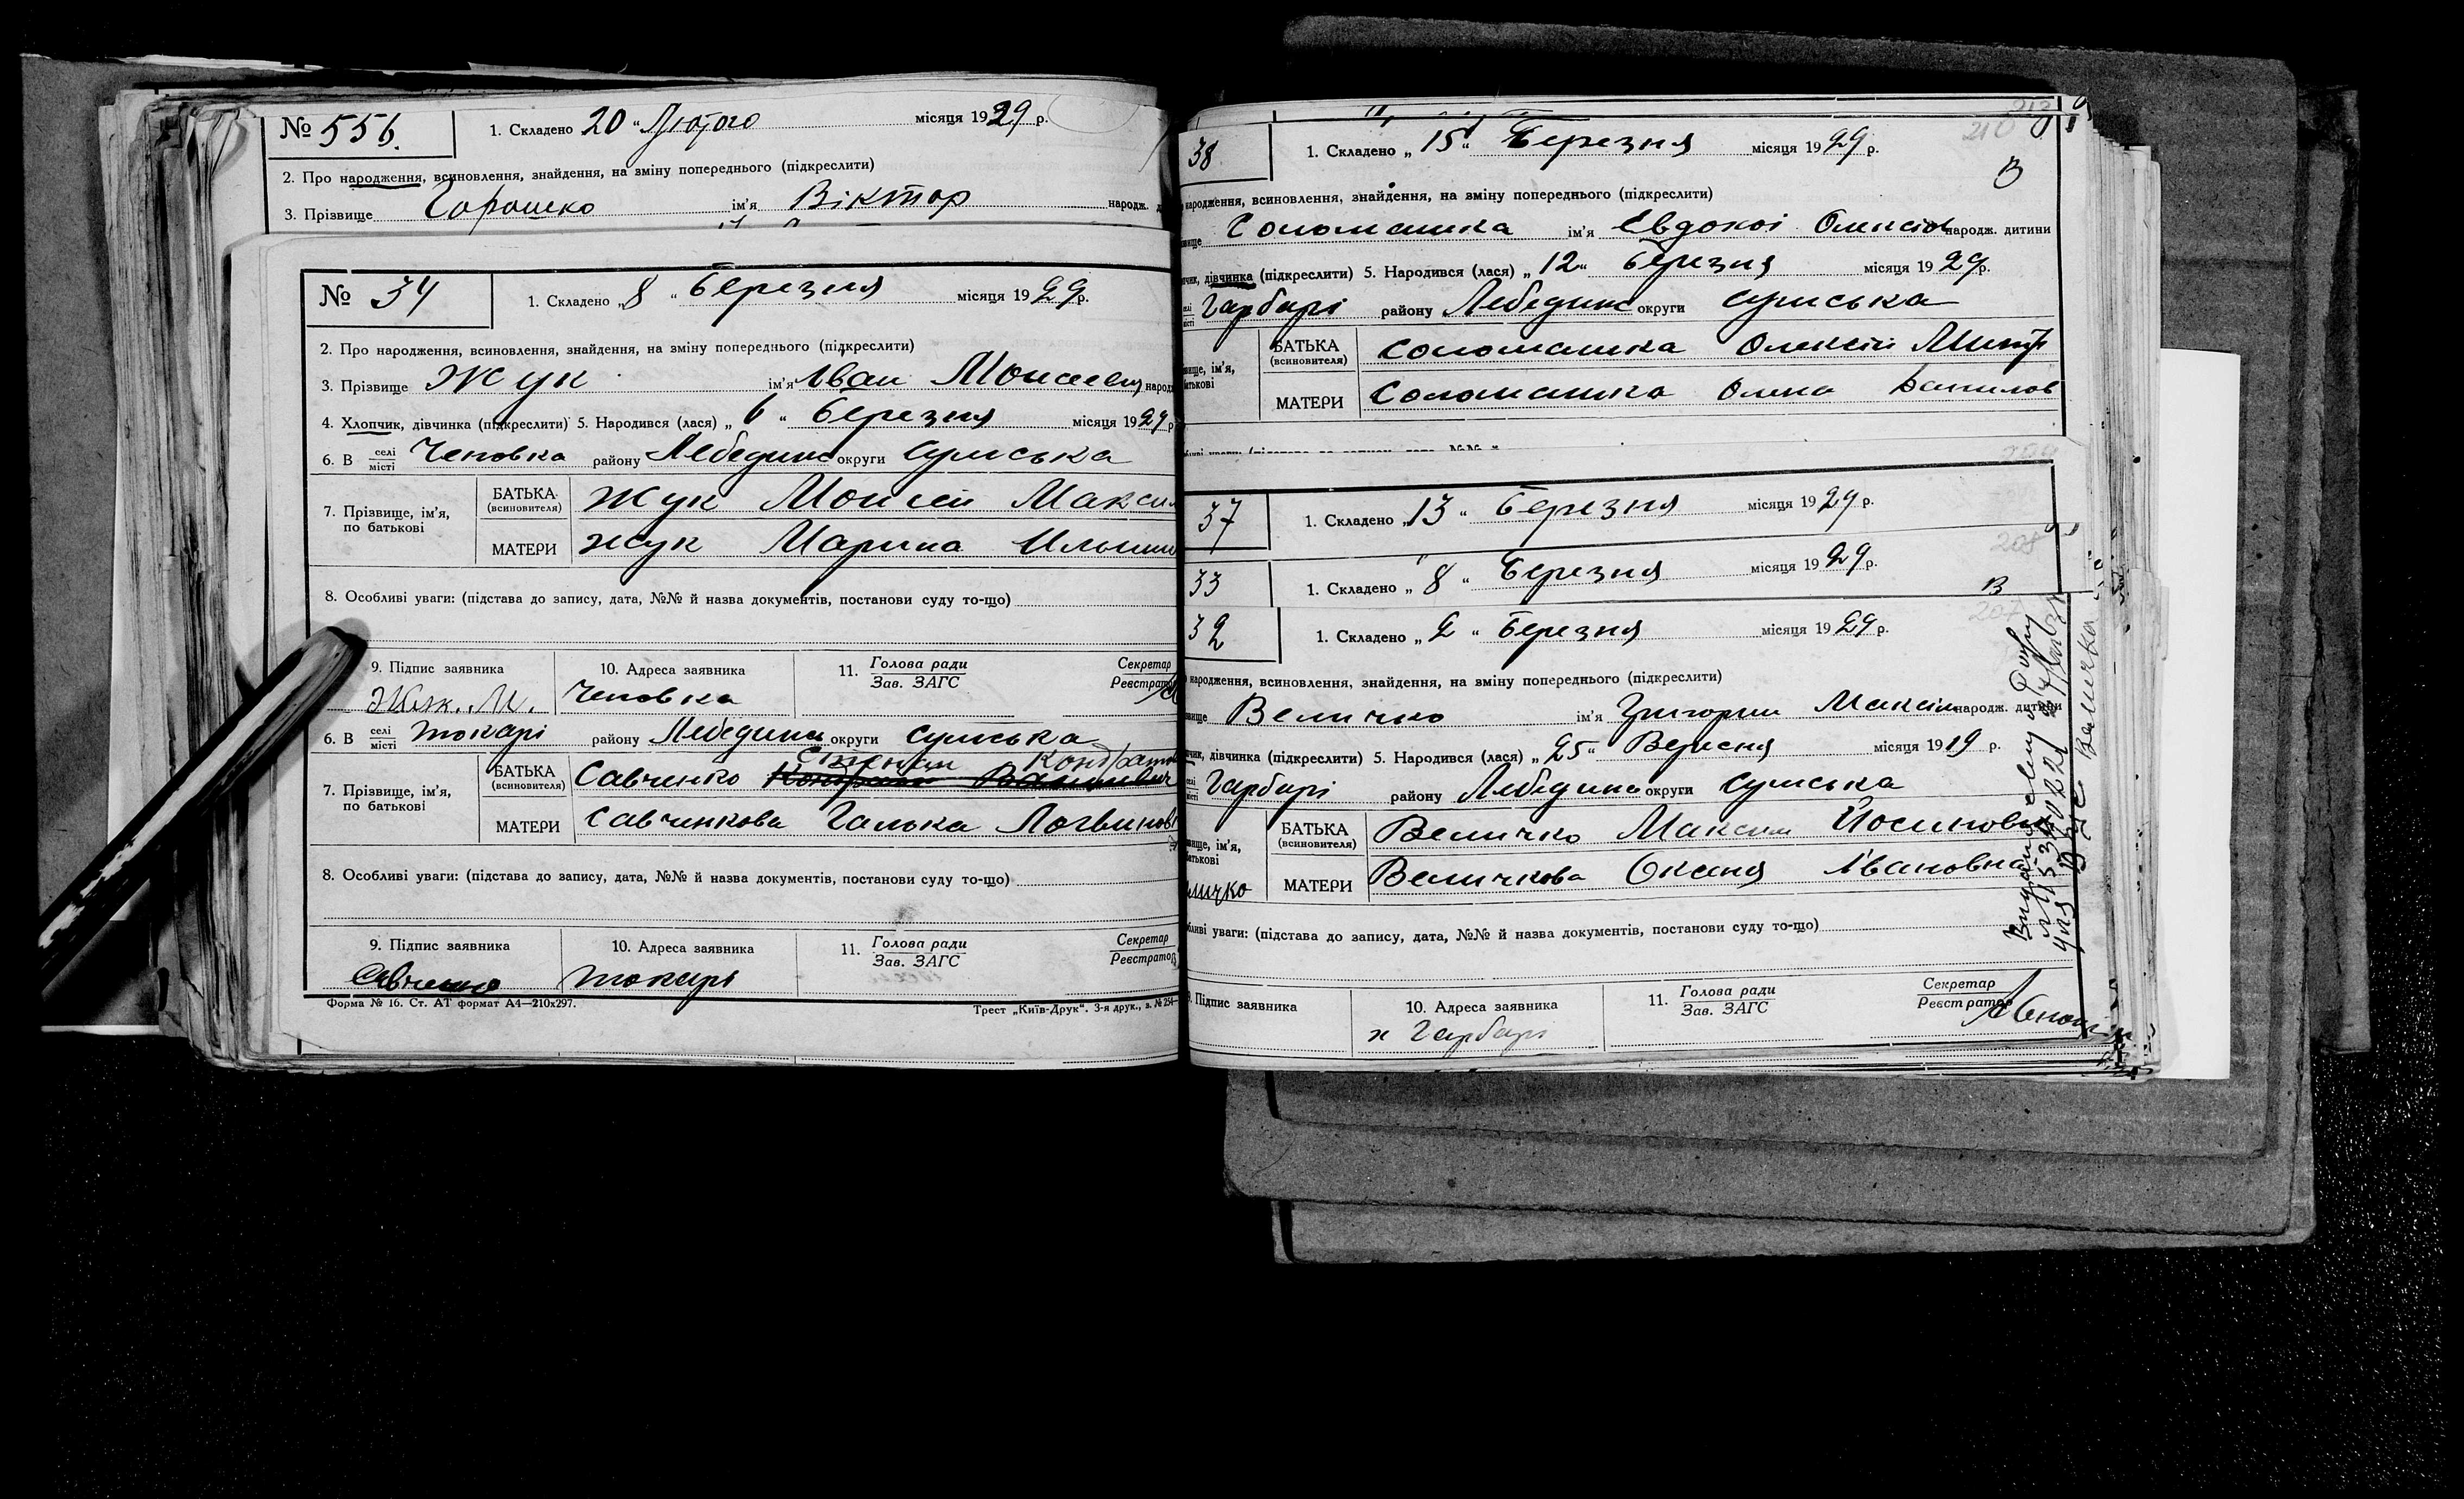 № 556. 1. Складено 20 " Лютого місяця 1929 р.
2. Про народження, всиновлення, знайдення, на зміну попереднього (підкреслити)
3. Прізвище Горошко ім'я Віктор народж.
№ 34 1. Складено „ 8 " Березня місяця 1929 р.
2. Про народження, всиновлення, знайдення, на зміну попереднього (підкреслити)
3. Прізвище Жук ім'я Іван Моисеев народ
4. Хлопчик, дівчинка (підкреслити) 5. Народився (лася) „ 6 " Березня місяця 1929 р
6. В селі місті Чеповка району Лебединс округи Сумська
7. Прізвище, ім'я, по батькові
БАТЬКА (всиновителя) Жук Моисей Макси
МАТЕРИ Жук Марина Ильини
8. Особливі уваги: (підстава до запису, дата, №№ й назва документів, постанови суду то-що)
9. Підпис заявника 10. Адреса заявника 11. Голова ради Зав. ЗАГС Секретар Реєстратор
Жук. М. Чеповка
6. В селі місті Токарі району Лебединс округи Сумська
Степан Кондрат
7. Прізвище, ім'я, по батькові
БАТЬКА (всиновителя) Савченко
МАТЕРИ Савченкова Галька Логвинов
8. Особливі уваги: (підстава до запису, дата, №№ й назва документів, постанови суду то-що)
9. Підпис заявника 10. Адреса заявника 11. Голова ради Зав. ЗАГС Секретар Реєстратор
Савченко Токарі
Форма № 16. Ст. АТ формат А4—210х297. Трест „Київ-Друк". 3-я друк., з. № 254
210
38 1. Складено „ 15 " Березня місяця 1929 р.
В
народження, всиновлення, знайдення, на зміну попереднього (підкреслити)
вище Соломашка ім'я Евдокоі Олексів народж. дитини
чик, дівчинка (підкреслити) 5. Народився (лася) „ 12 " Березня місяця 1929 р.
селі місті Гарбарі району Лебединс округи Сумська
вище, ім'я, батькові
БАТЬКА (всиновителя) Соломашка Олексій Митр
МАТЕРИ Соломашка Олена Данилов
37 1. Складено „ 13 " Березня місяця 1929 р.
208
33 1. Складено „ 8 " Березня місяця 1929 р.
В
207
32 1. Складено „ 2 " Березня місяця 1929 р.
народження, всиновлення, знайдення, на зміну попереднього (підкреслити)
вище Величко ім'я Григорий Максим народж. дитини
чик, дівчинка (підкреслити) 5. Народився (лася) „ 25 " Вересня місяця 1919 р.
селі місті Гарбарі району Лебединс округи Сумська
вище, ім'я, батькові
БАТЬКА (всиновителя) Величко Максим Йосипович
личко МАТЕРИ Величкова Оксана Івановна
бливі уваги: (підстава до запису, дата, №№ й назва документів, постанови суду то-що)
9. Підпис заявника 10. Адреса заявника 11. Голова ради Зав. ЗАГС Секретар Реєстратор
х Гарбарі